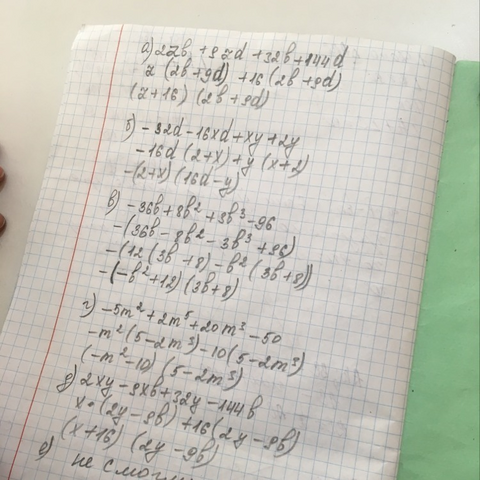 а) 2zb + 9zd + 32b + 144d
z (2b + 9d) + 16 (2b + 9d)
(z + 16) (2b + 9d)
б) -32d - 16xd + xy + 2y
-16d (2 + x) + y (x + 2)
-(2 + x) (16d - y)
в) -36b + 8b² + 3b³ - 96
-(36b - 8b² - 3b³ + 96)
-(12 (3b + 8) - b² (3b + 8))
-(-b² + 12) (3b + 8)
г) -5m² + 2m⁵ + 20m³ - 50
-m² (5 - 2m³) - 10 (5 - 2m³)
(-m² - 10) (5 - 2m³)
д) 2xy - 9xb + 32y - 144b
x · (2y - 9b) + 16 (2y - 9b)
(x + 16) (2y - 9b)
е) не смог